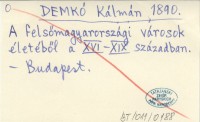 0
DEMKÓ Kálmán 1890.
A felsőmagyarországi városok
életéből a XVI-XIX században.
- Budapest.
BT/011/0188